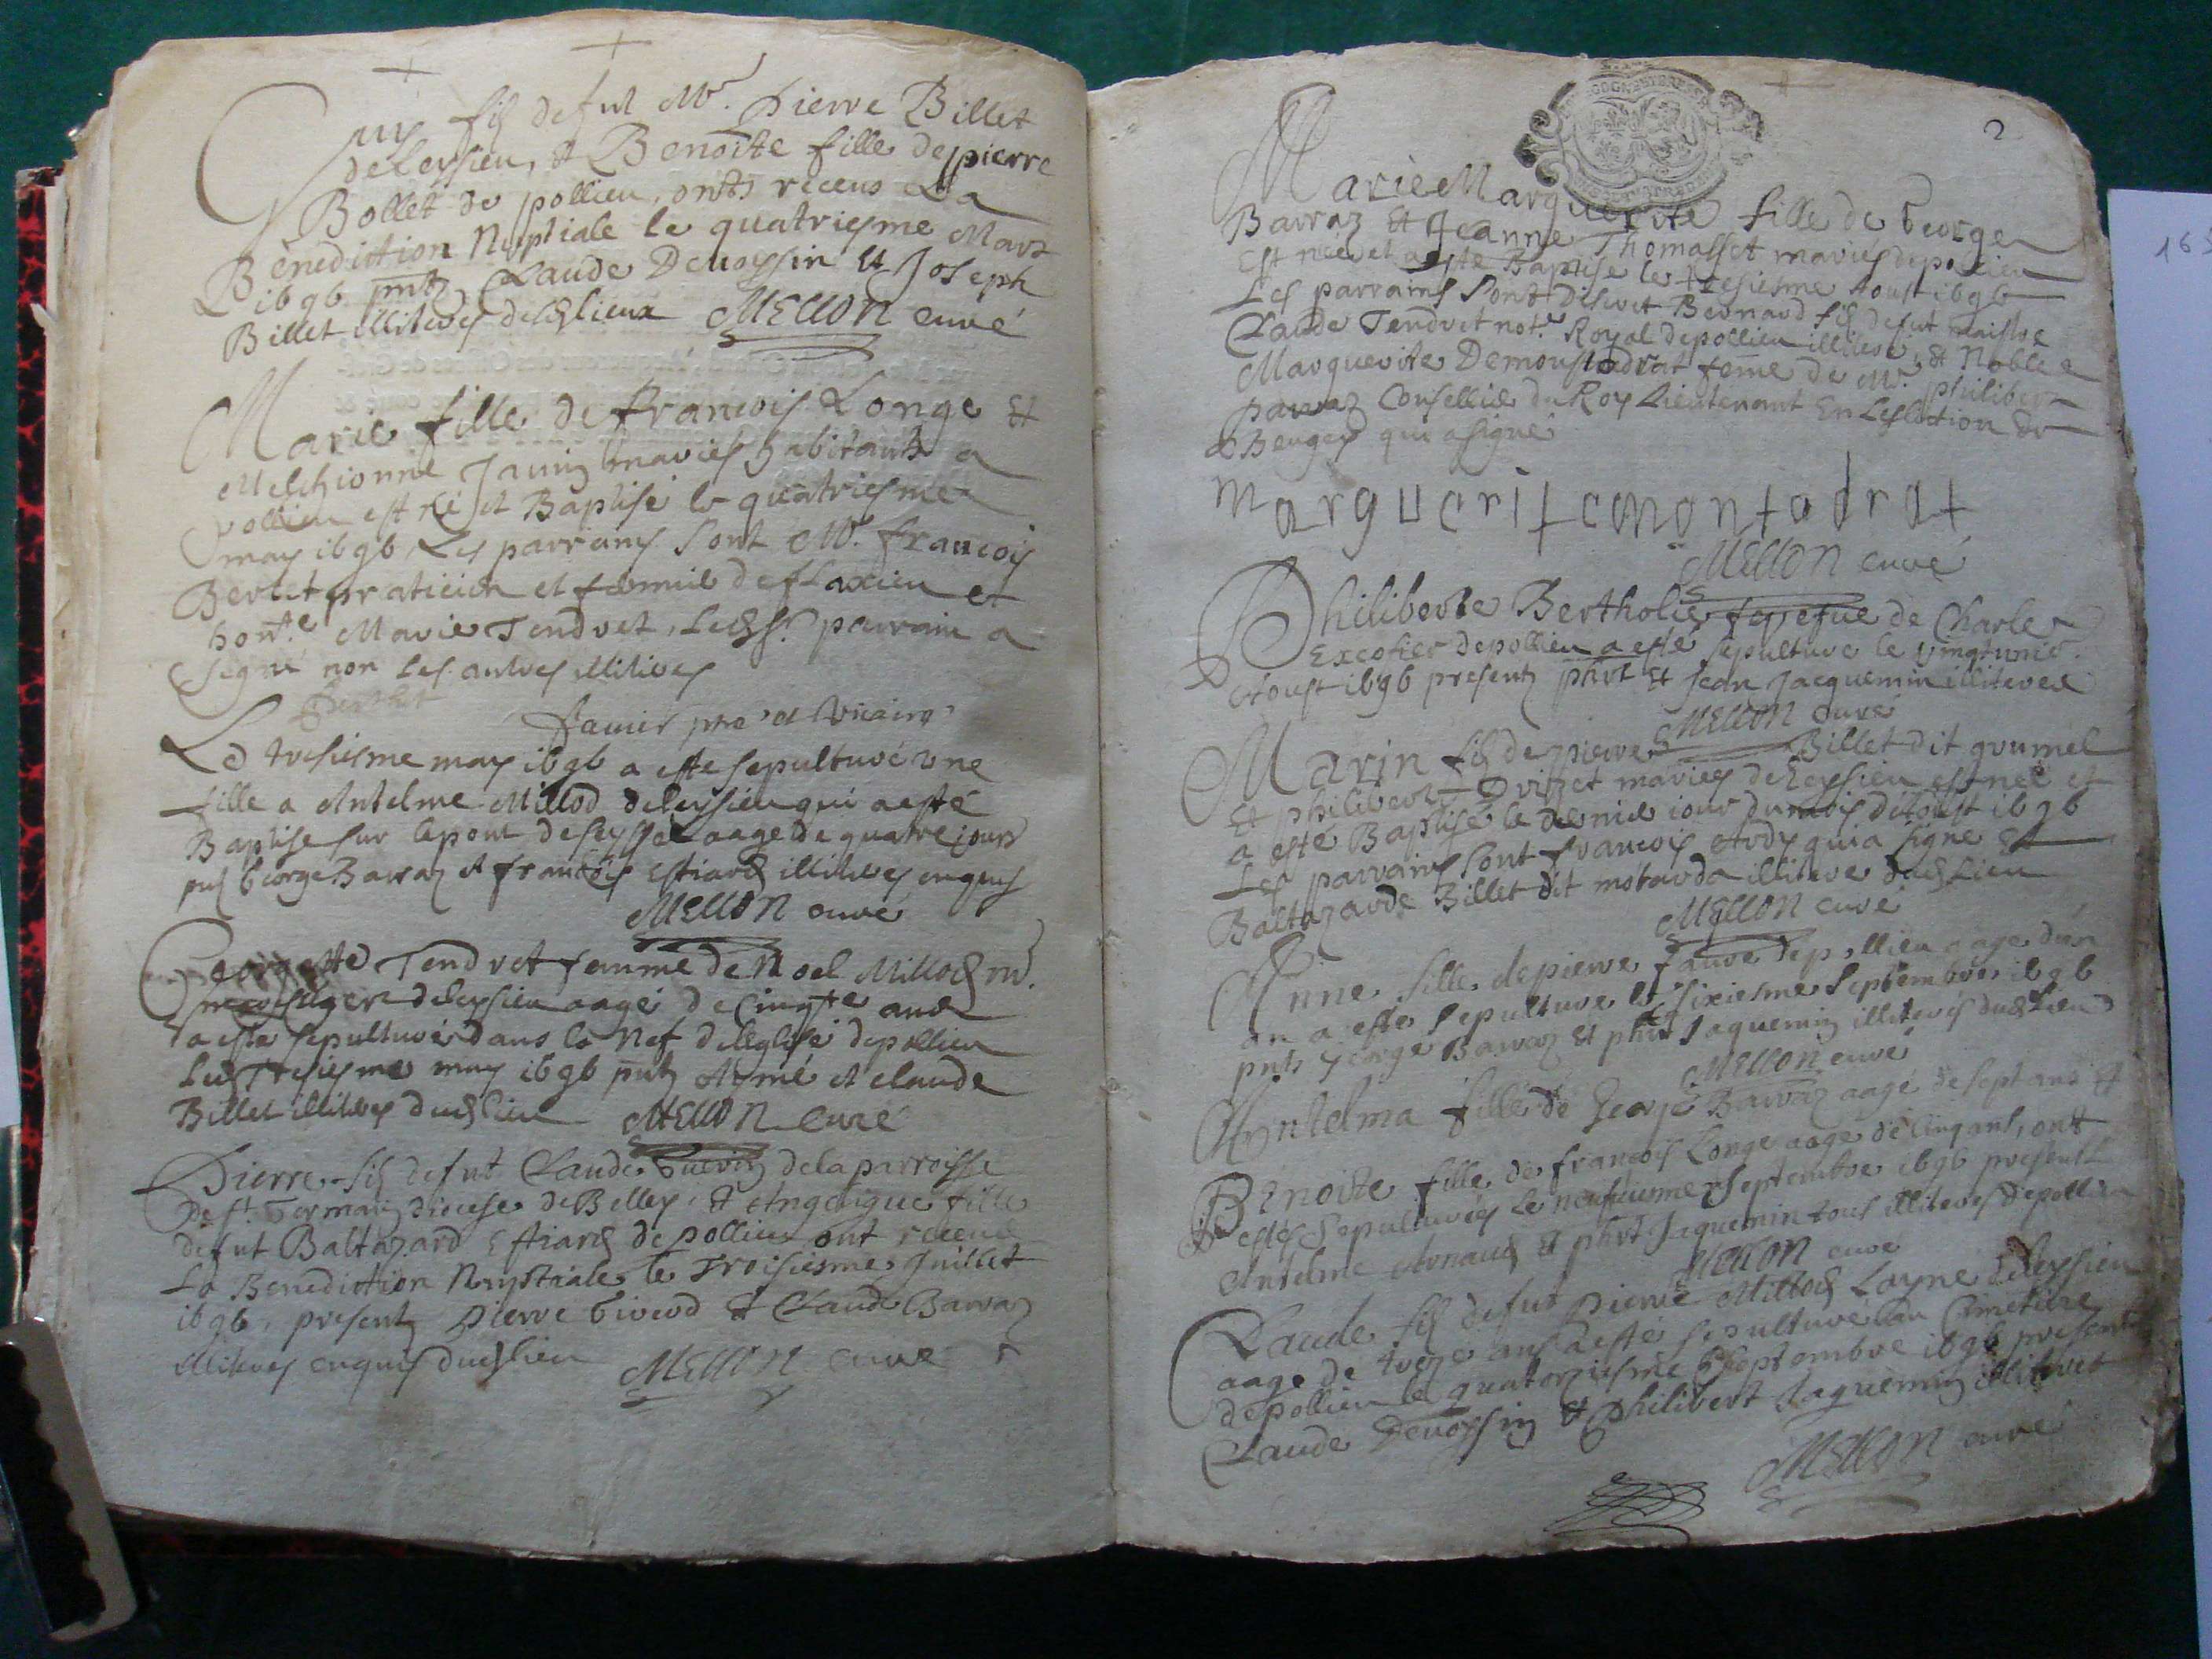 Guy fils de fut Mr. Pierre Billet
de Leysieu, et Benoite fille de pierre
Bollet de pollieu, onts receus La
Benediction Nuptiale le quatriesme Mars
1696 pnts Claude Deuoyssin et Joseph
Billet illiteres desds lieux MELLON curé
Marie fille de francois Longe et
Melchionne Janin maries habitants a
pollieu est né et Baptisé le quatriesme
may 1696 Les parrains sont Mr. francois
Bertet praticien et fermie de flaxieu et
honte. Marie Tendret, Ledsr. parrain a
signé non les autres illiteres
Berthet
fauier pre et vicaire
Le tresiesme may 1696 a este sepulturé une
fille a Antelme Millod de Leysieu qui a esté
Baptise sur le pont de seyssel aage de quatre jours
pns George Barraz et francois Estiard illiteres enquis
MELLON curé
Georgette Tendret femme de Noel Millod md.
de Leysieu aagé de Cinqte ans
a este sepulturé dans la Nef de leglise de pollieu
Led tresiesme may 1696 pnts Aymé et claude
Billet illiteres dud lieu MELLON Curé
Pierre fils de fut Claude Guerin de la parroisse
de st. Germain diocese de Belley, et Angelique fille
de fut Baltazard Estiard de pollieu ont receus
La Benediction Nuptiale le Troisiesme Juillet
1696, presents Pierre Giverd et Claude Barraz
illiteres enquis dud lieu MELLON curé
2
Marie Marguerite fille de George
Barraz et Jeanne Thomasset mariés de pollieu
Est neé et a esté Baptise le tresiesme Aoust 1696
Les parrains sont discret Bernard fils de fut maistre
Claude Tendret note Royal de pollieu illitere, et Noble
Marguerite Demontodrat feme de Mr. philibert
parraz Conseillier du Roy Lieutenant En Leslection de
Beugey qui a signé
margueritemontodrat
MELLON curé
Philiberte Bertholie de Charle
Excofier de pollieu a esté sepulturé le vingtunie.
Aoust 1696 presents phbt et Jean Jacquemin illiteres
MELLON curé
Marin fils de pierre Billet dit grumel
Et philiberte Drizet mariés de Leysieu est neé et
a esté Baptisé le dernie iour du mois d'Aoust 1696
Les parrains sont francois Ardy qui a signé Et
Baltazarde Billet dit motarda illitere dud Lieu
MELLON curé
Anne fille de pierre faure de pollieu aage d'un
an a esté sepulture le sixiesme septembre 1696
pnts George Barraz et phbt Jaquemin illiteres dud Lieu
MELLON curé
Antelma fille de George Barraz aagé de sept ans et
Benoite fille de francois Longe aagé de cinq ans, ont
estés sepulturés Le neufuiesme septembre 1696 presents
Antelme Arnaud et phbt Jaquemin tous illiteres de pollieu
MELLON curé
Claude fils de fut pierre Millod Layne de Leysieu
aage de treze ans a esté sepulturé au Cimetiere
de pollieu le quatorziesme septembre 1696 presents
Claude Deuoyssin et Philibert Jaquemin illiteres
MELLON curé